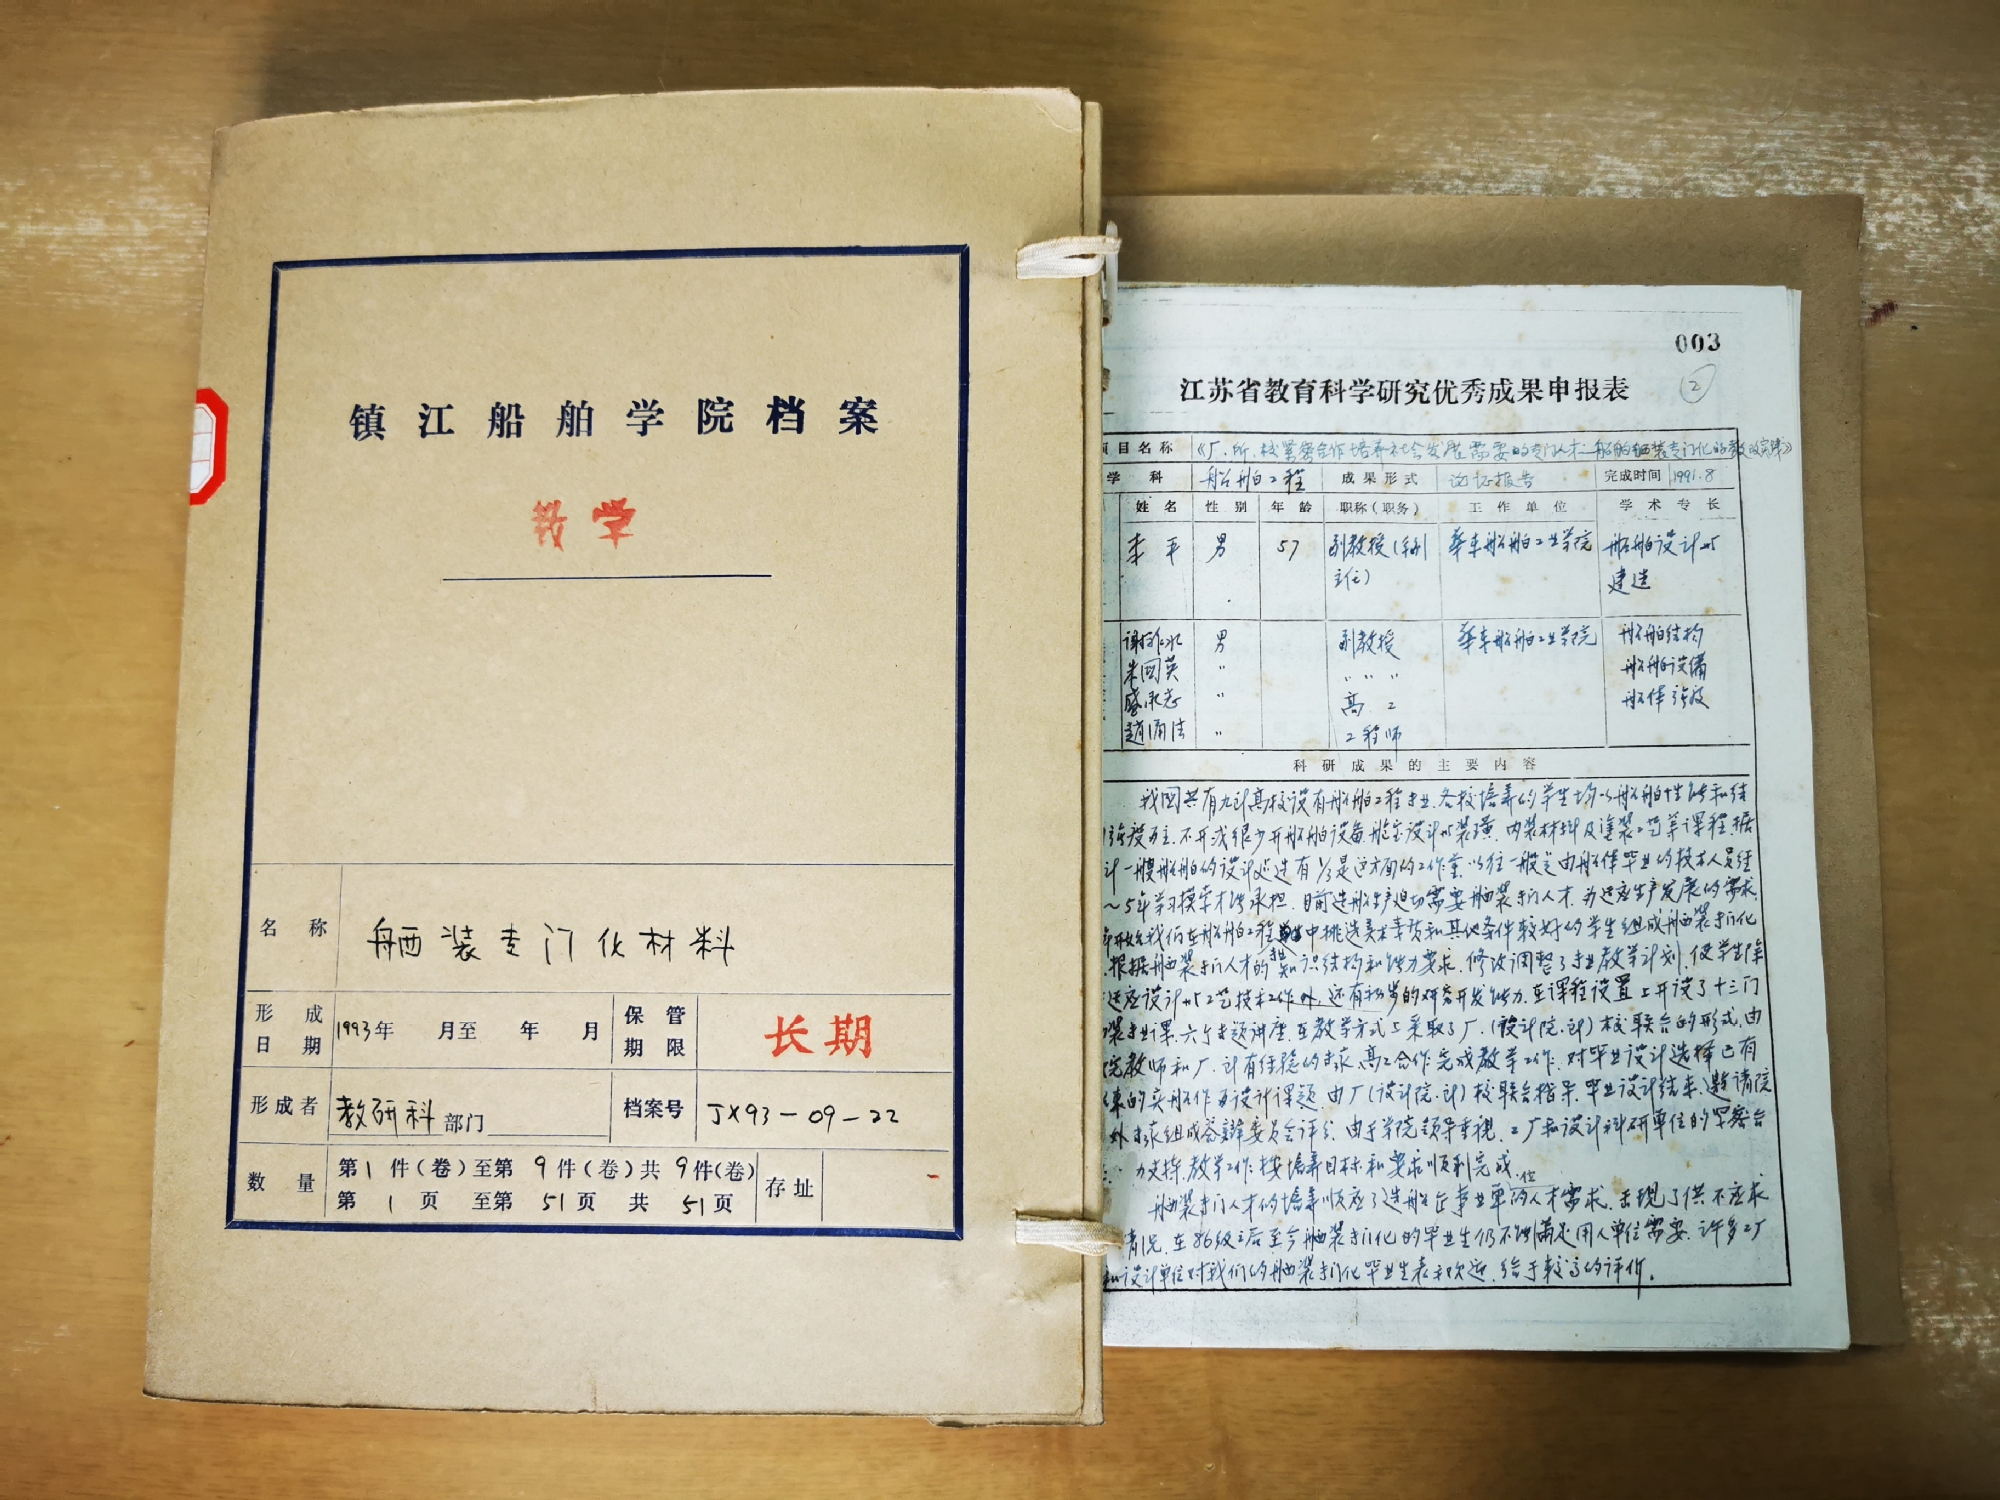 镇江船舶学院档案
教学
名称 舾装专门化材料
形成日期 1993年 月至 年 月 保管期限 长期
形成者 教研科 部门 档案号 JX93-09-22
数量 第1件(卷)至第9件(卷)共9件(卷)
第1页 至第51页 共51页 存址
003
江苏省教育科学研究优秀成果申报表 2
项目名称 《厂、所、校紧密合作培养社会发展需要的专门人才—船舶舾装专门化的教改实践》
学科 船舶工程 成果形式 论证报告 完成时间 1991.8
姓名 性别 年龄 职称(职务) 工作单位 学术专长
李平 男 57 副教授(系副主任) 华东船舶工业学院 船舶设计与建造
谢祚水 男 副教授 华东船舶工业学院 船舶结构
朱国英 〃 〃〃〃 船舶设备
盛永志 〃 高工 船体强度
赵 〃 工程师
科研成果的主要内容
我国共有九所高校设有船舶工程专业,各校培养的学生均以船舶性能和结
强度为主,不开或很少开船舶设备、舱室设计与装潢、内装材料及涂装工艺等课程,据
计一般船舶的设计建造有1/3是这方面的工作量,以往一般是由船体毕业的技术人员经
~5年学习摸索才能承担,目前造船生产迫切需要舾装专门人才,为适应生产发展的需求,
年开始我们在船舶工程专业中挑选美术素质和其他条件较好的学生组成舾装专门化
,根据舾装专门人才的知识结构和能力要求,修改调整了专业教学计划,使学生除
适应设计与工艺技术工作外,还有初步的研究开发能力,在课程设置上开设了十三门
装专业课,六个专题讲座,在教学方式上采取了厂、(设计院、所)校联合的形式,由
院教师和厂、所有经验的专家、高工合作完成教学工作,对毕业设计选择已有
来的实船作为设计课题,由厂(设计院、所)校联合指导,毕业设计结束,邀请院
外专家组成答辩委员会评分,由于学院领导重视,工厂和设计科研单位的紧密合
力支持,教学工作按培养目标和要求顺利完成。
舾装专门人才的培养顺应了造船企事业单位的人才需求,出现了供不应求
情况,在86级之后至今舾装专门化的毕业生仍不能满足用人单位需要,许多工厂
和设计单位对我们的舾装专门化毕业生表示欢迎,给予较高的评价。